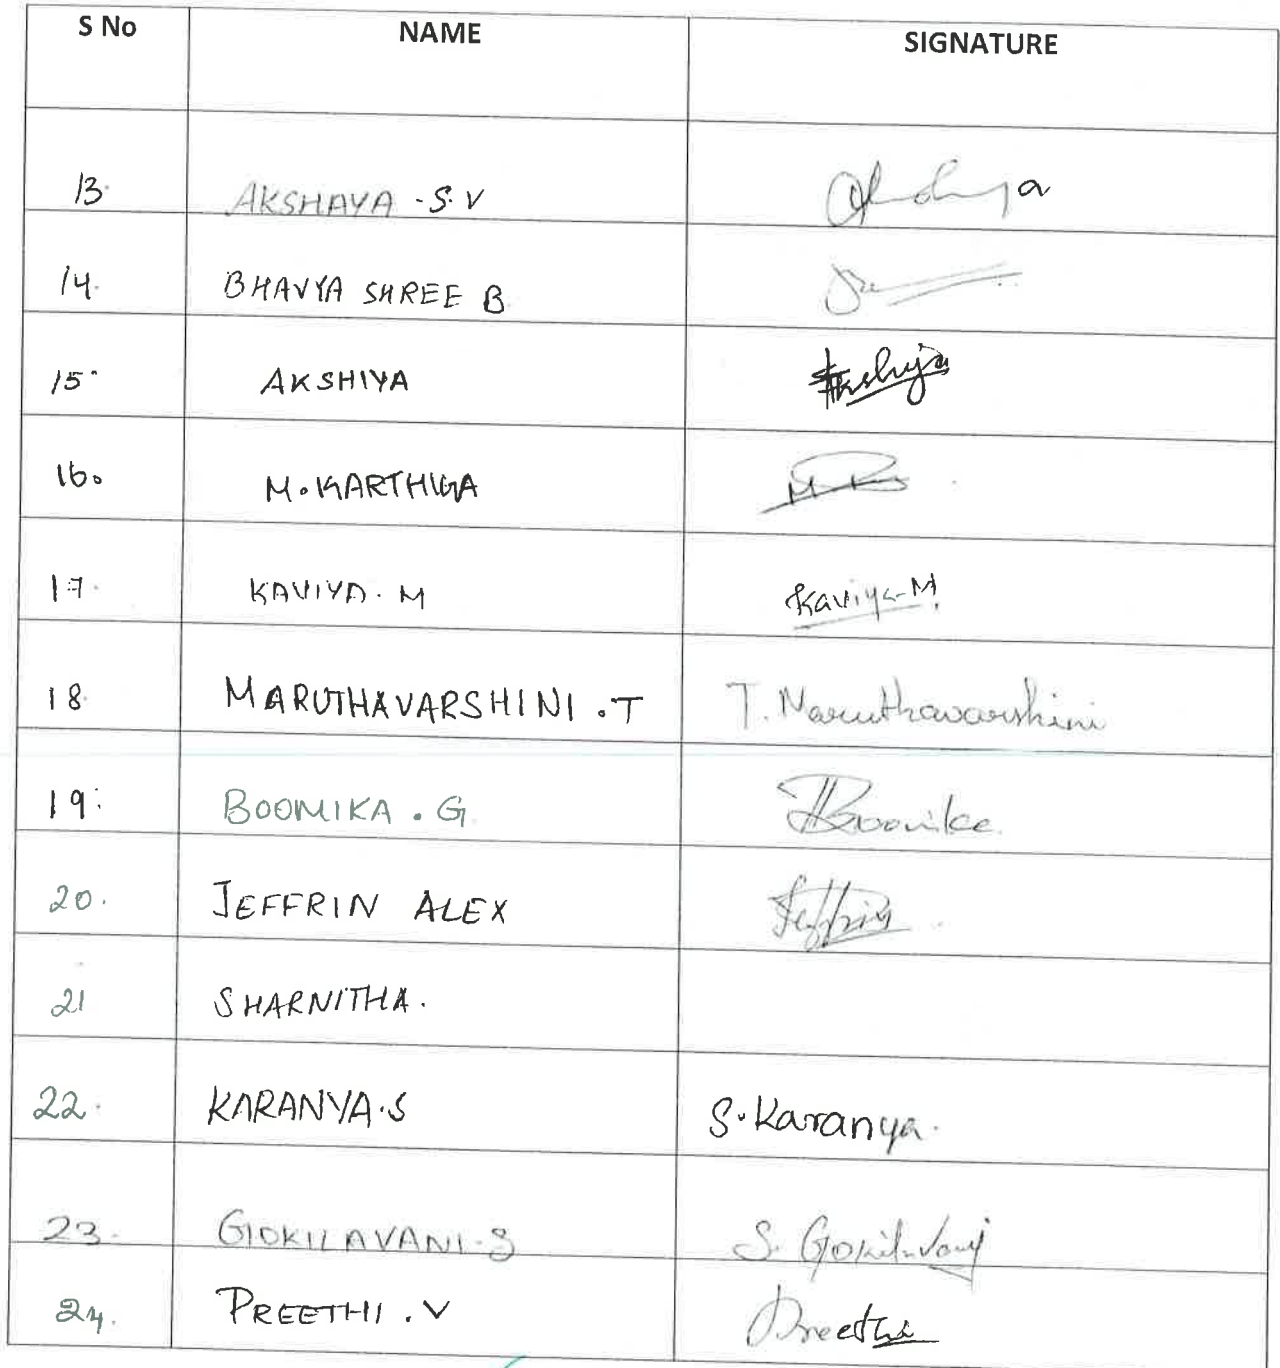 S No NAME SIGNATURE
13. AKSHAYA .S.V Akshaya
14. BHAVYA SHREE B
15. AKSHIYA Akshiya
16. M.KARTHIGA
17. KAVIYA. M Kaviya-M
18. MARUTHAVARSHINI .T T. Maruthavarshini
19. BOOMIKA . G Boomika
20. JEFFRIN ALEX Jeffrin
21 SHARNITHA.
22. KARANYA.S S.Karanya.
23. GOKILAVANI.S S. Gokilavani
24. PREETHI .V Preethi